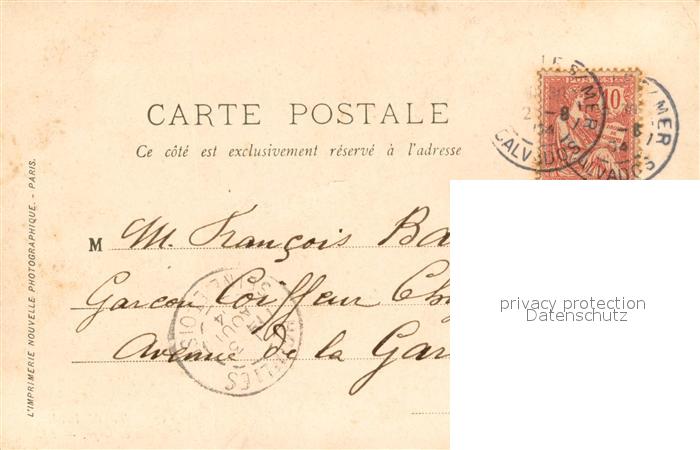 CARTE POSTALE
Ce côté est exclusivement réservé à l'adresse
POSTES
10
/MER
CALVADOS
/MER
CALVADOS
M M. François Ba
Garçon Coiffeur Ch
Avenue de la Gar
AOUT
privacy protection
Datenschutz
L'IMPRIMERIE NOUVELLE PHOTOGRAPHIQUE. - PARIS.